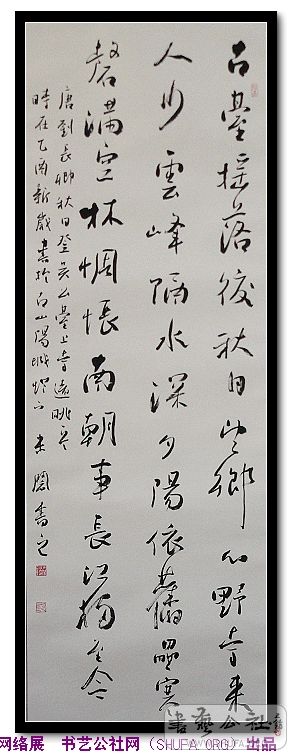 古臺搖落後秋日望鄉心野寺來
人少雲峰隔水深夕陽依舊壘寒
磬滿空林惆悵南朝事長江獨至今
唐劉長卿秋日登吳公臺上寺遠眺
時在乙酉新歲書於古山陽城
書藝公社
网络展 书艺公社网（SHUFA.ORG）出品